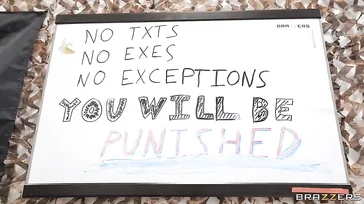 BRAZZERS
NO TXTS
NO EXES
NO EXCEPTIONS
YOU WILL BE
PUNISHED
BRAZZERS